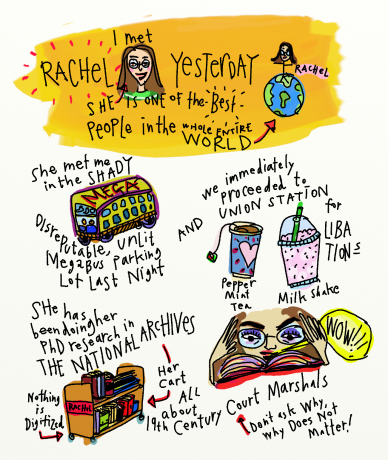 I met
RACHEL YESTERDAY
RACHEL
SHE IS ONE OF the Best
People in the WHOLE ENTIRE
WORLD
She met me
in the SHADY
MEGA
Disreputable, unlit
MegaBus Parking
Lot Last Night
AND
we immediately
proceeded to
UNION STATION
for
LIBA
TIONS
Pepper
Mint
Tea
Milk shake
SHe has
been doing her
PhD research in
THE NATIONAL ARCHIVES
Nothing
is
Digitized
RACHEL
Her
Cart
ALL
about
19th Century
WOW!!!
Court Marshals
Don't ask Why,
Why Does Not
Matter!!